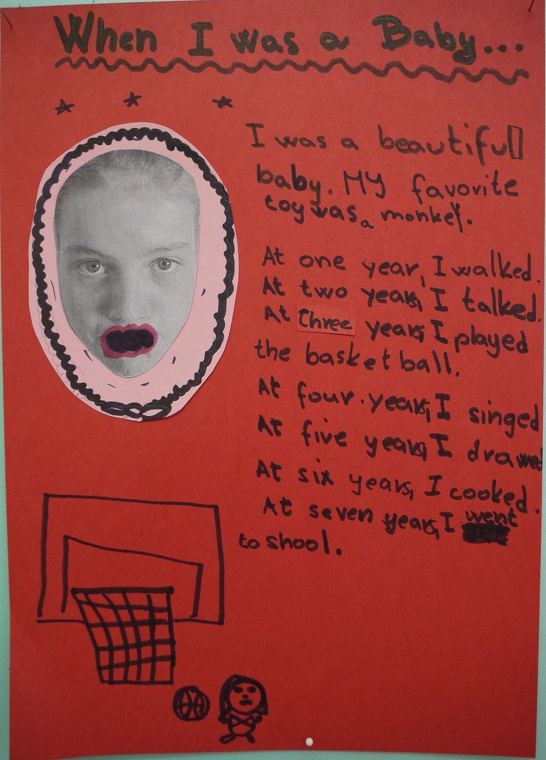 When I was a Baby...
I was a beautiful
baby. My favorite
toy was a monkey.
At one year, I walked.
At two years, I talked.
At three years, I played
the basketball.
At four years, I singed
At five years, I drawed
At six years, I cooked.
At seven years, I went
to shool.